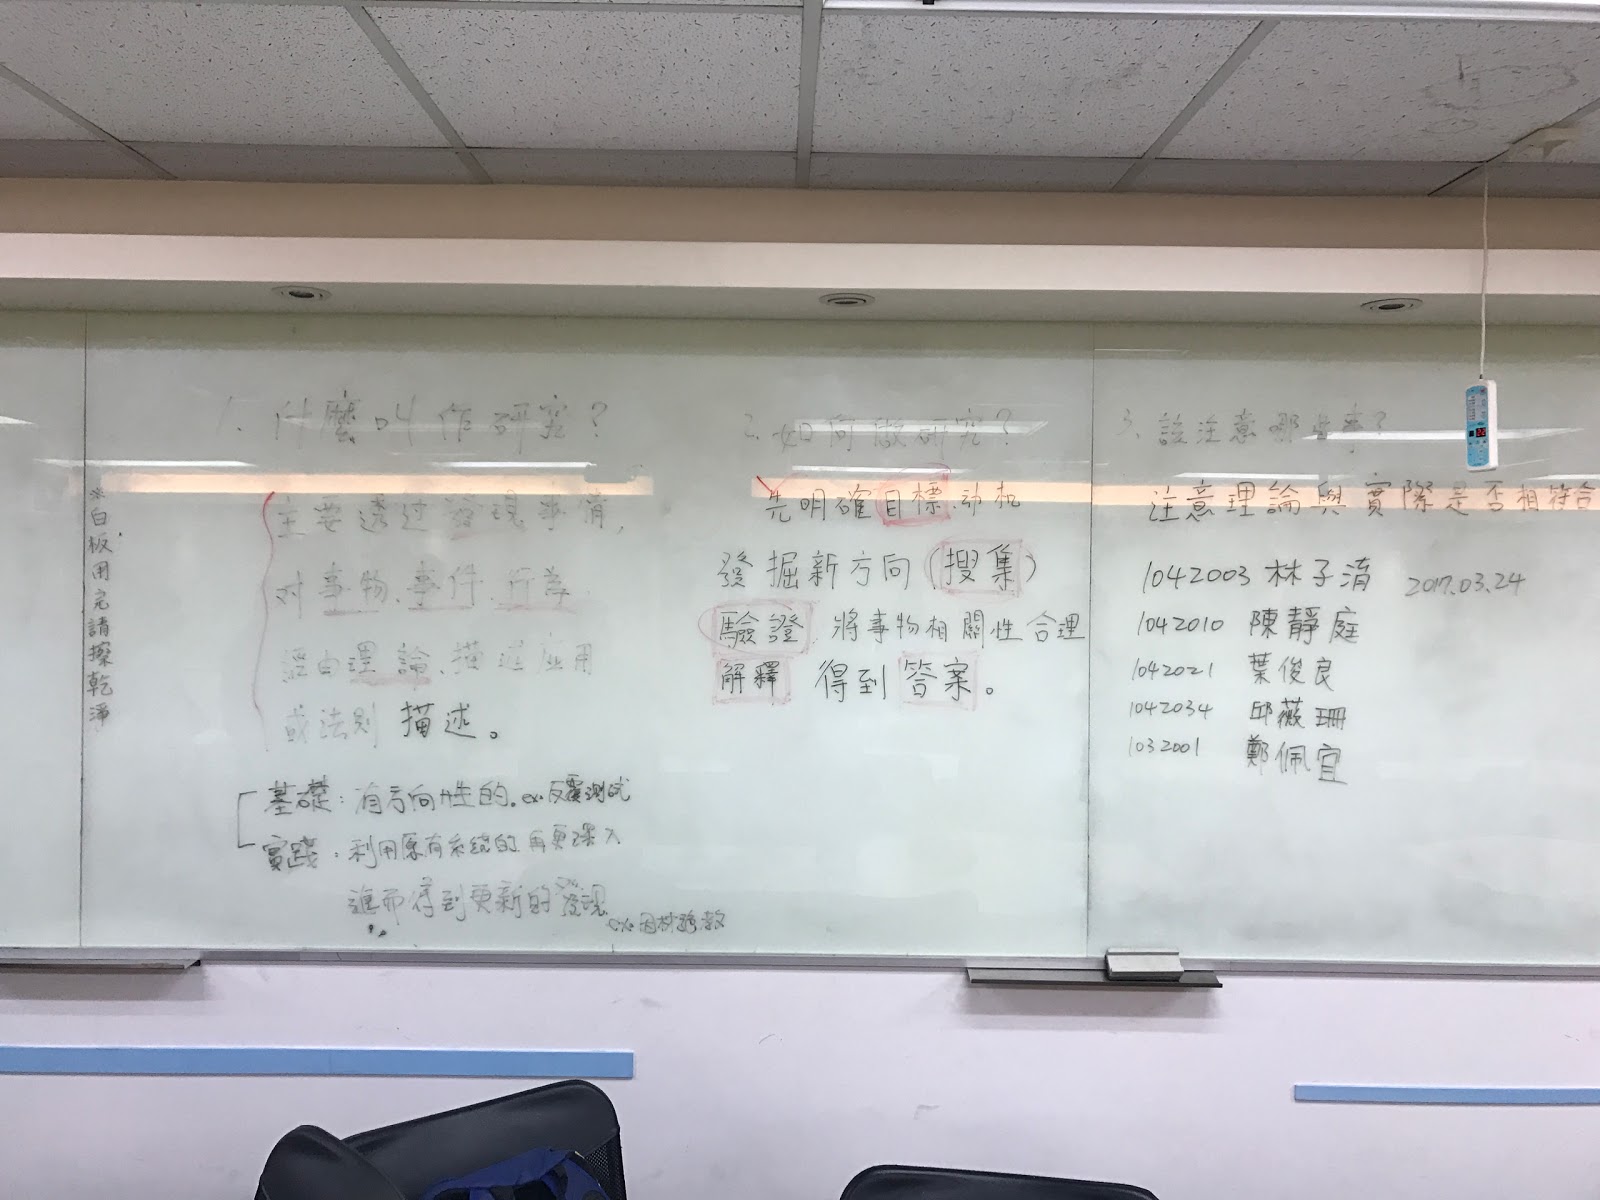 ※白板用完請擦乾淨
1. 什麼叫作研究?
主要透過發現事情,
對事物、事件、行為
經由理論、描述應用
或法則描述。
基礎:有方向性的. ex.反覆測試
實踐:利用原有系統的再更深入
進而得到更新的發現
ex.因材施教
2. 如何做研究?
先明確目標、动机
發掘新方向(搜集)
驗證 將事物相關性合理
解釋 得到答案。
3. 該注意哪些事?
注意理論與實際是否相符合
1042003 林子淯 2017.03.24
1042010 陳靜庭
1042021 葉俊良
1042034 邱薇珊
1032001 鄭佩宜